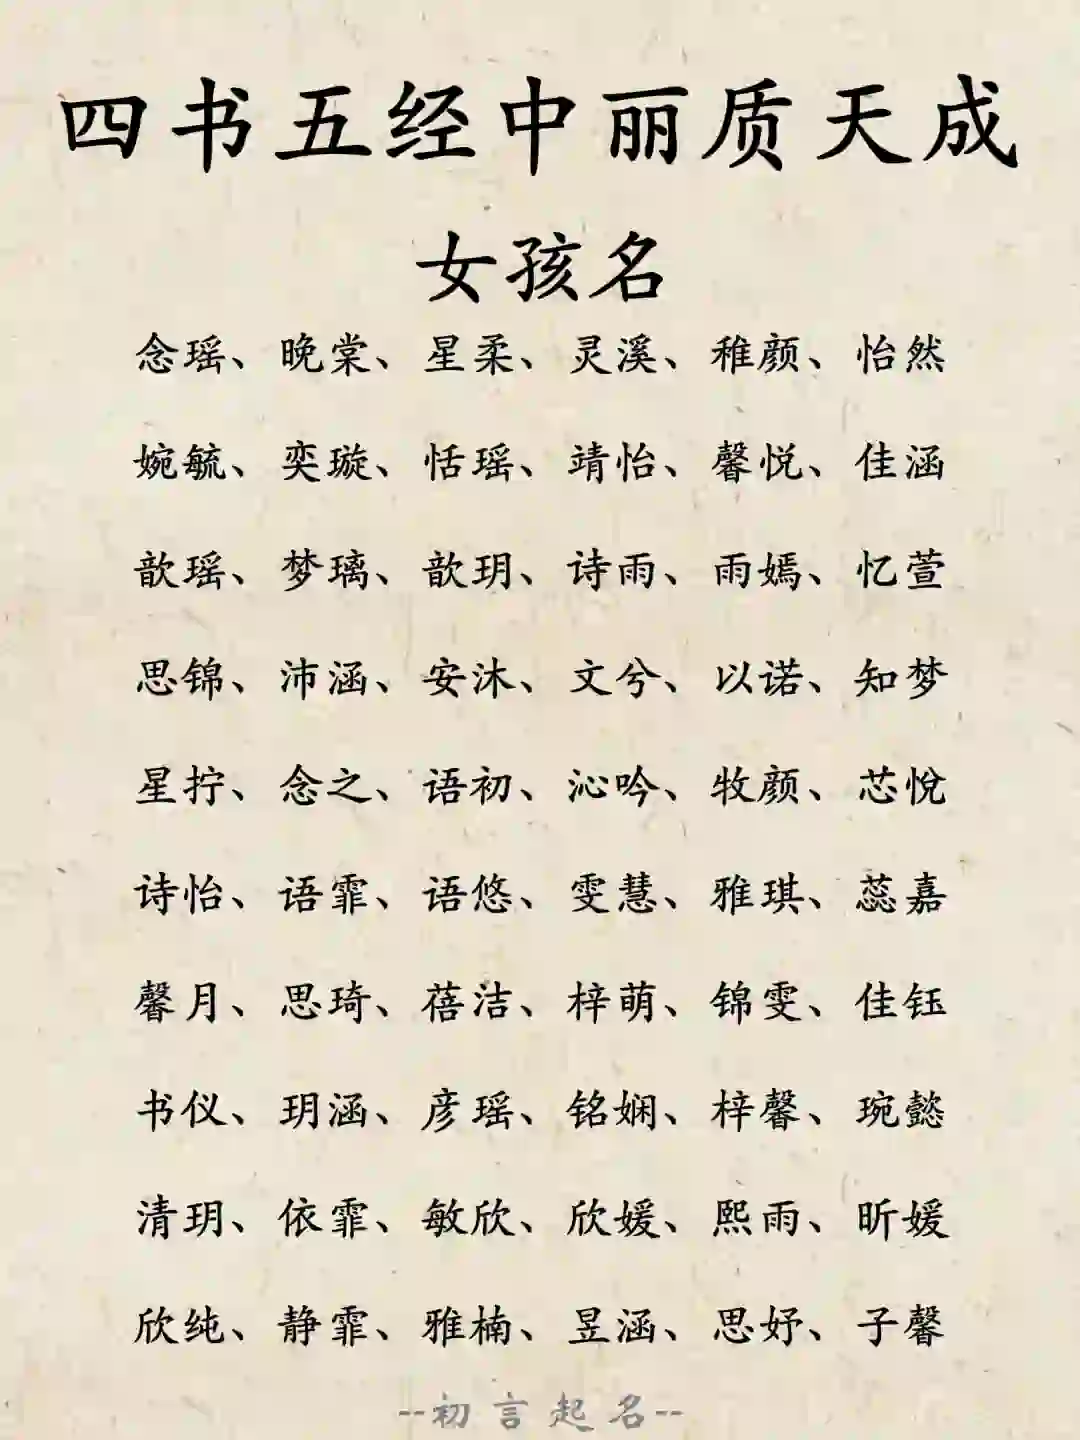 四书五经中丽质天成
女孩名
念瑶、晚棠、星柔、灵溪、稚颜、怡然
婉毓、奕璇、恬瑶、靖怡、馨悦、佳涵
歆瑶、梦璃、歆玥、诗雨、雨嫣、忆萱
思锦、沛涵、安沐、文兮、以诺、知梦
星拧、念之、语初、沁吟、牧颜、芯悦
诗怡、语霏、语悠、雯慧、雅琪、蕊嘉
馨月、思琦、蓓洁、梓萌、锦雯、佳钰
书仪、玥涵、彦瑶、铭娴、梓馨、琬懿
清玥、依霏、敏欣、欣媛、熙雨、昕媛
欣纯、静霏、雅楠、昱涵、思妤、子馨
--初言起名--